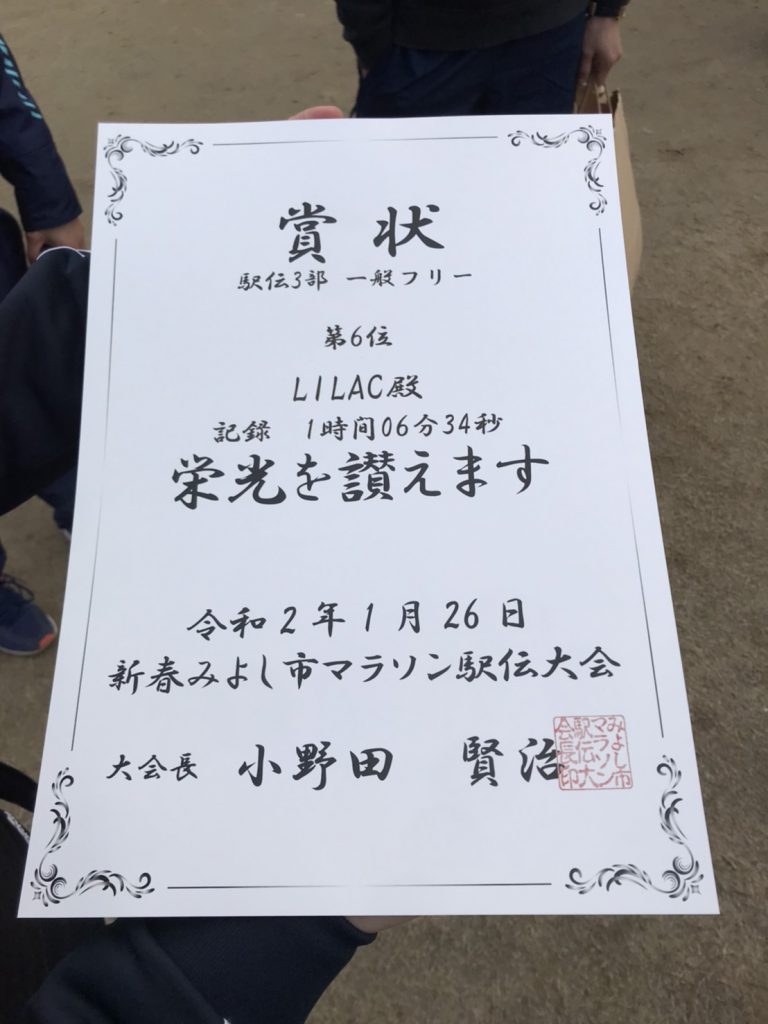 賞状
駅伝3部 一般フリー
第6位
LILAC殿
記録 1時間06分34秒
栄光を讃えます
令和2年1月26日
新春みよし市マラソン駅伝大会
大会長 小野田 賢治
みよし市
マラソン
駅伝大
会長印